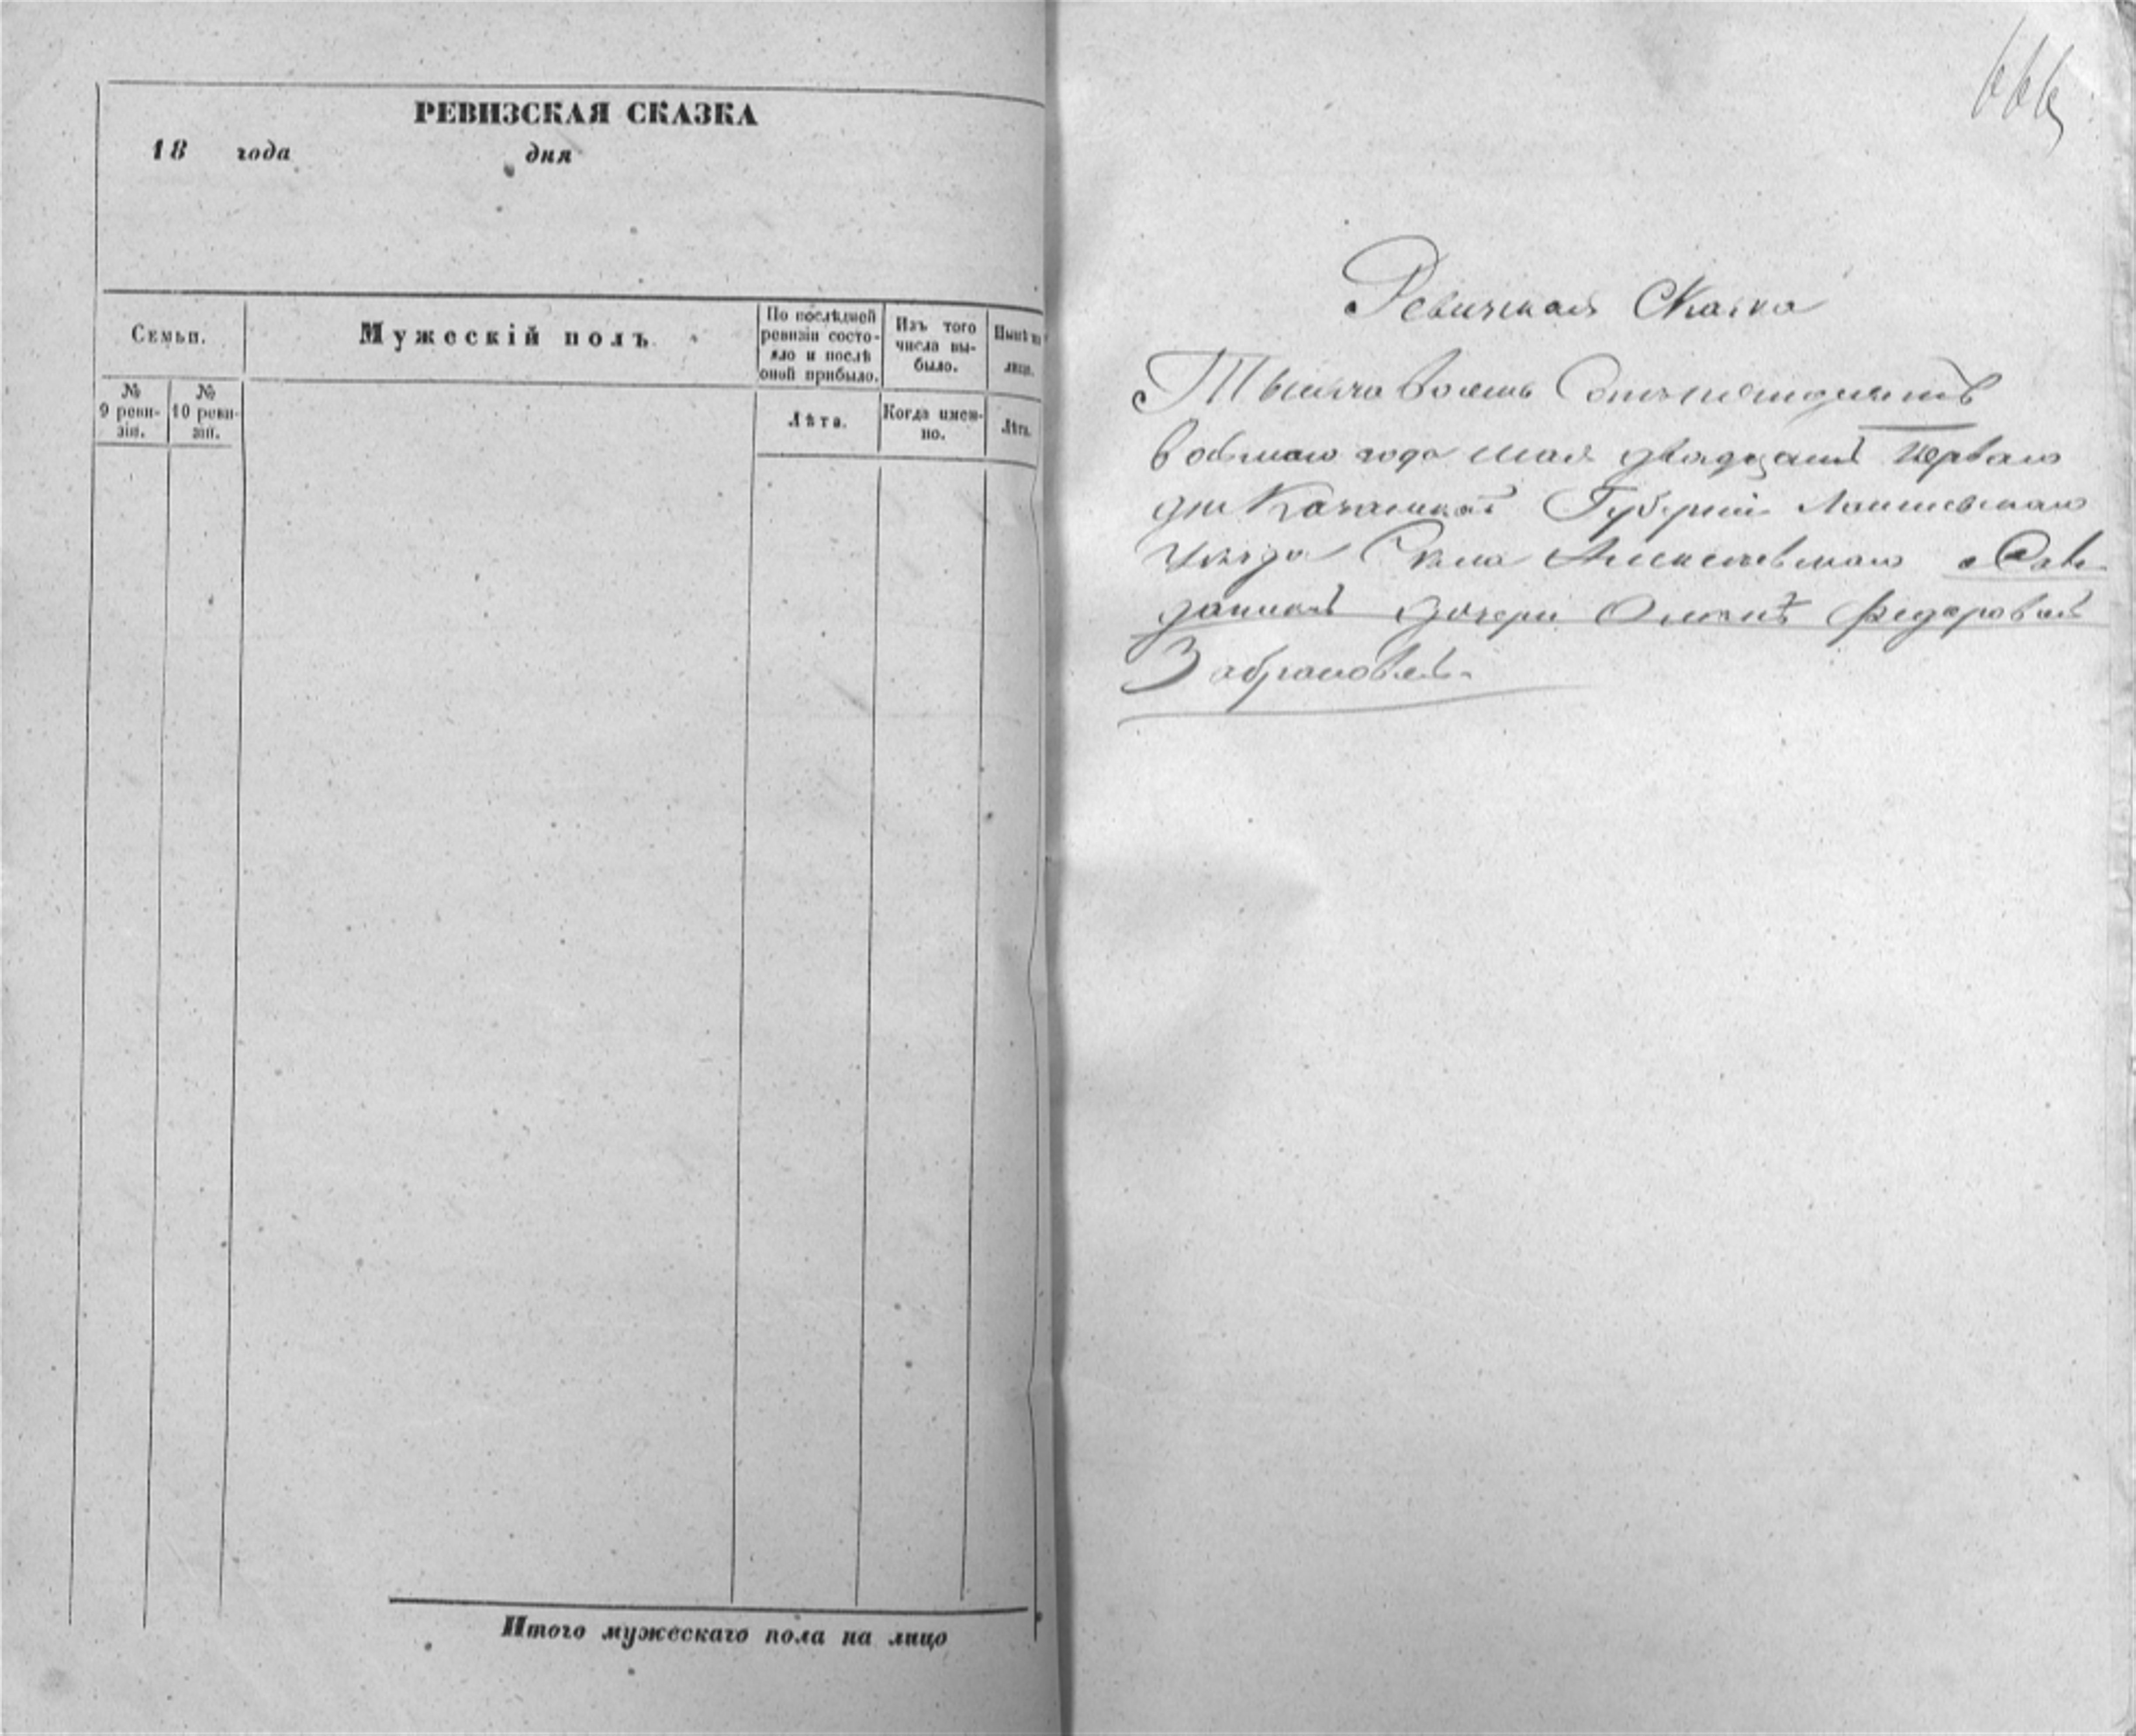 РЕВИЗСКАЯ СКАЗКА
18 года дня
Семьи.
Мужескій полъ
По послѣдней ревизіи состояло и послѣ оной прибыло.
Изъ того числа выбыло.
Нынѣ на лицо.
№ 9 ревизіи.
№ 10 ревизіи.
Лѣта.
Когда именно.
Лѣта.
Итого мужескаго пола на лицо
666
Ревизская Сказка
Тысяча восемь Сотъ пятидесятъ
восьмаго года мая двадцать перваго
дня Казанской Губерніи Лаишевскаго
Уезда Села Алексеевскаго
дочери Федоровой